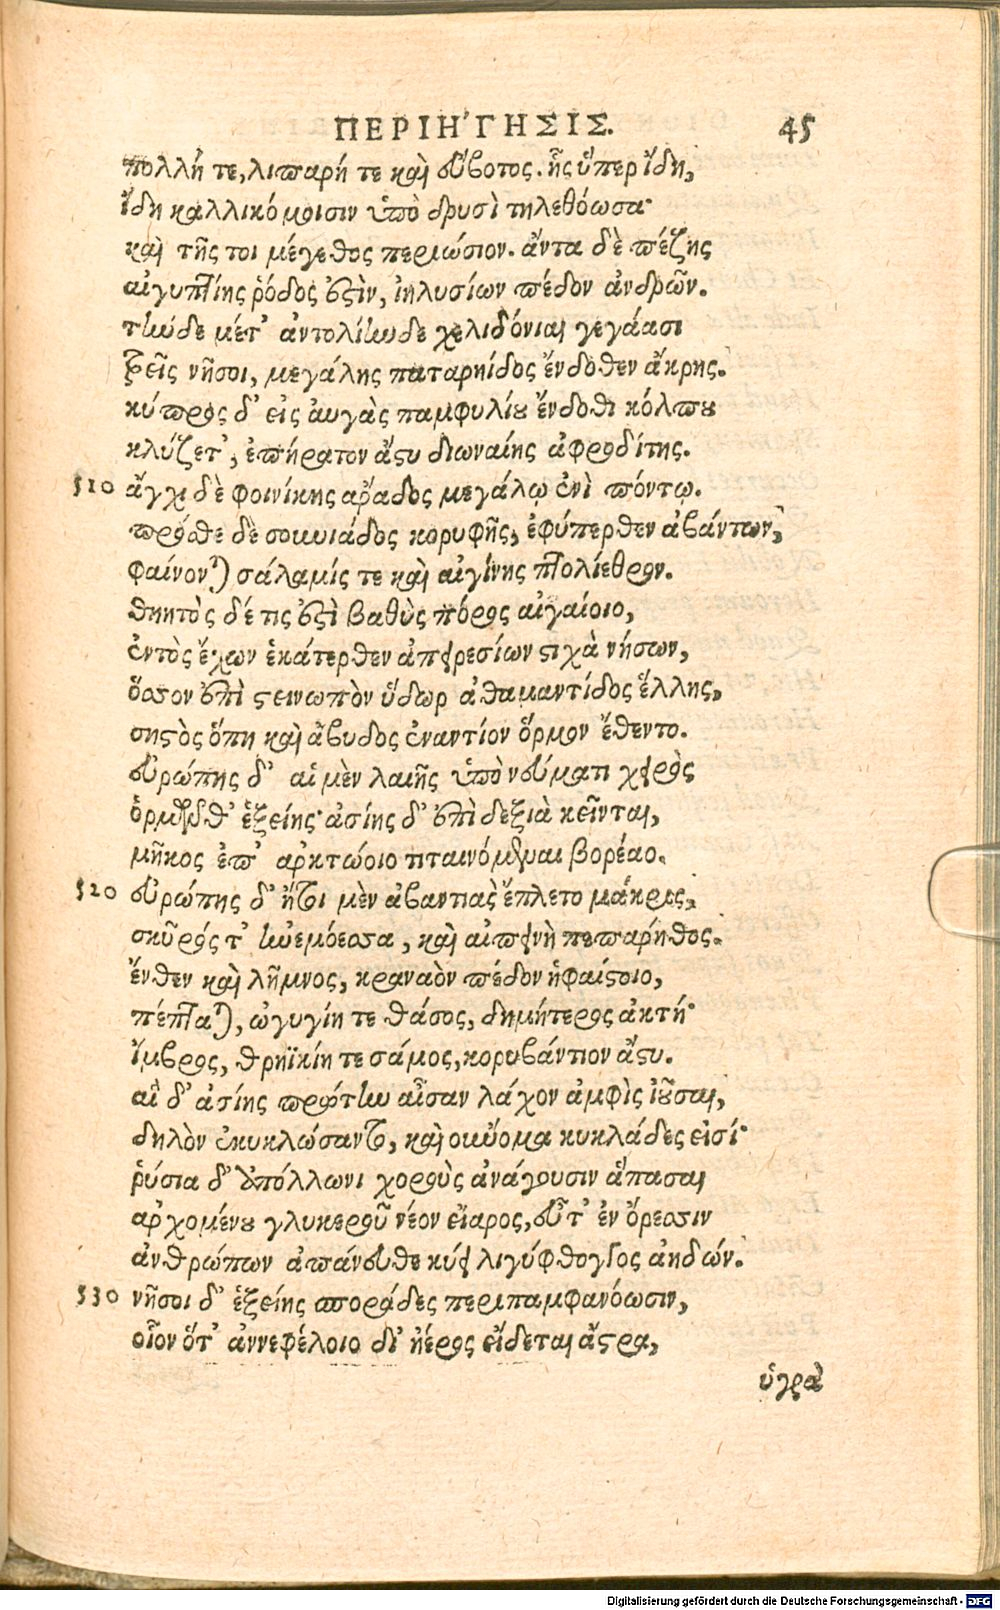 ΠΕΡΙΗΓΗΣΙΣ. 45
πολλή τε, λιπαρή τε καὶ εὔβοτος. ἧς ὕπερ ἴδη,
ἴδη καλλικόμοισιν ὑπὸ δρυσὶ τηλεθόωσα·
καὶ τῆς τοι μέγεθος περιώσιον. ἄντα δὲ πέζης
αἰγυπτίης ῥόδος ἐστὶν, ἰηλυσίων πέδον ἀνδρῶν.
τὴν δὲ μέτ' ἀντολίην δε χελιδόνιαι γεγάασι
τρεῖς νῆσοι, μεγάλης παταρηίδος ἔνδοθεν ἄκρης.
κύπρος δ' εἰς ἀυγὰς παμφυλίου ἔνδοθι κόλπου
κλύζετ', ἐπήρατον ἄστυ διωναίης ἀφροδίτης.
510 ἄγχι δὲ φοινίκης ἄραδος μεγάλῳ ἐνὶ πόντῳ.
πρόσθε δὲ σουνιάδος κορυφῆς, ἐφύπερθεν ἀβάντων,
φαίνονται σάλαμίς τε καὶ αἰγίνης πτολίεθρον.
θηητὸς δέ τις ἐστὶ βαθὺς πόρος αἰγαίοιο,
ἐντὸς ἔχων ἑκάτερθεν ἀπειρεσίων στιχὰ νήσων,
ὅσσον ἐπὶ στεινωπὸν ὕδωρ ἀθαμαντίδος ἕλλης,
σηστὸς ὅπη καὶ ἄβυδος ἐναντίον ὅρμον ἔθεντο.
εὐρώπης δ' αἱ μὲν λαιῆς ὑπὸ νεύματι χειρὸς
ὁρμῶνθ' ἑξείης· ἀσίης δ' ἐπὶ δεξιὰ κεῖνται,
μῆκος ἐπ' ἀρκτώοιο τιταινόμεναι βορέαο.
520 εὐρώπης δ' ἤτοι μὲν ἀβαντιὰς ἔπλετο μάκρις,
σκῦρός τ' ἠνεμόεσσα, καὶ αἰπεινὴ πεπαρήθος.
ἔνθεν καὶ λῆμνος, κραναὸν πέδον ἡφαίστοιο,
πέπταται, ὠγυγίη τε θάσος, δημήτερος ἀκτή·
ἴμβρος, θρηϊκίη τε σάμος, κορυβάντιον ἄστυ.
αἳ δ' ἀσίης πρώτην αἶσαν λάχον ἀμφὶς ἰοῦσαι,
δηλὸν ἐκυκλώσαντο, καὶ οὔνομα κυκλάδες εἰσί·
ῥύσια δ' ἀπόλλωνι χοροὺς ἀνάγουσιν ἅπασαι
ἀρχομένου γλυκεροῦ νέον εἴαρος, εὖτ' ἐν ὄρεσσιν
ἀνθρώπων ἀπάνευθε κύει λιγύφθογγος ἀηδών.
530 νῆσοι δ' ἑξείης σποράδες περιπαμφανόωσιν,
οἷον ὅτ' ἀννεφέλοιο δι' ἠέρος εἴδεται ἄστρα,
ὑγρὰ
Digitalisierung gefördert durch die Deutsche Forschungsgemeinschaft - DFG